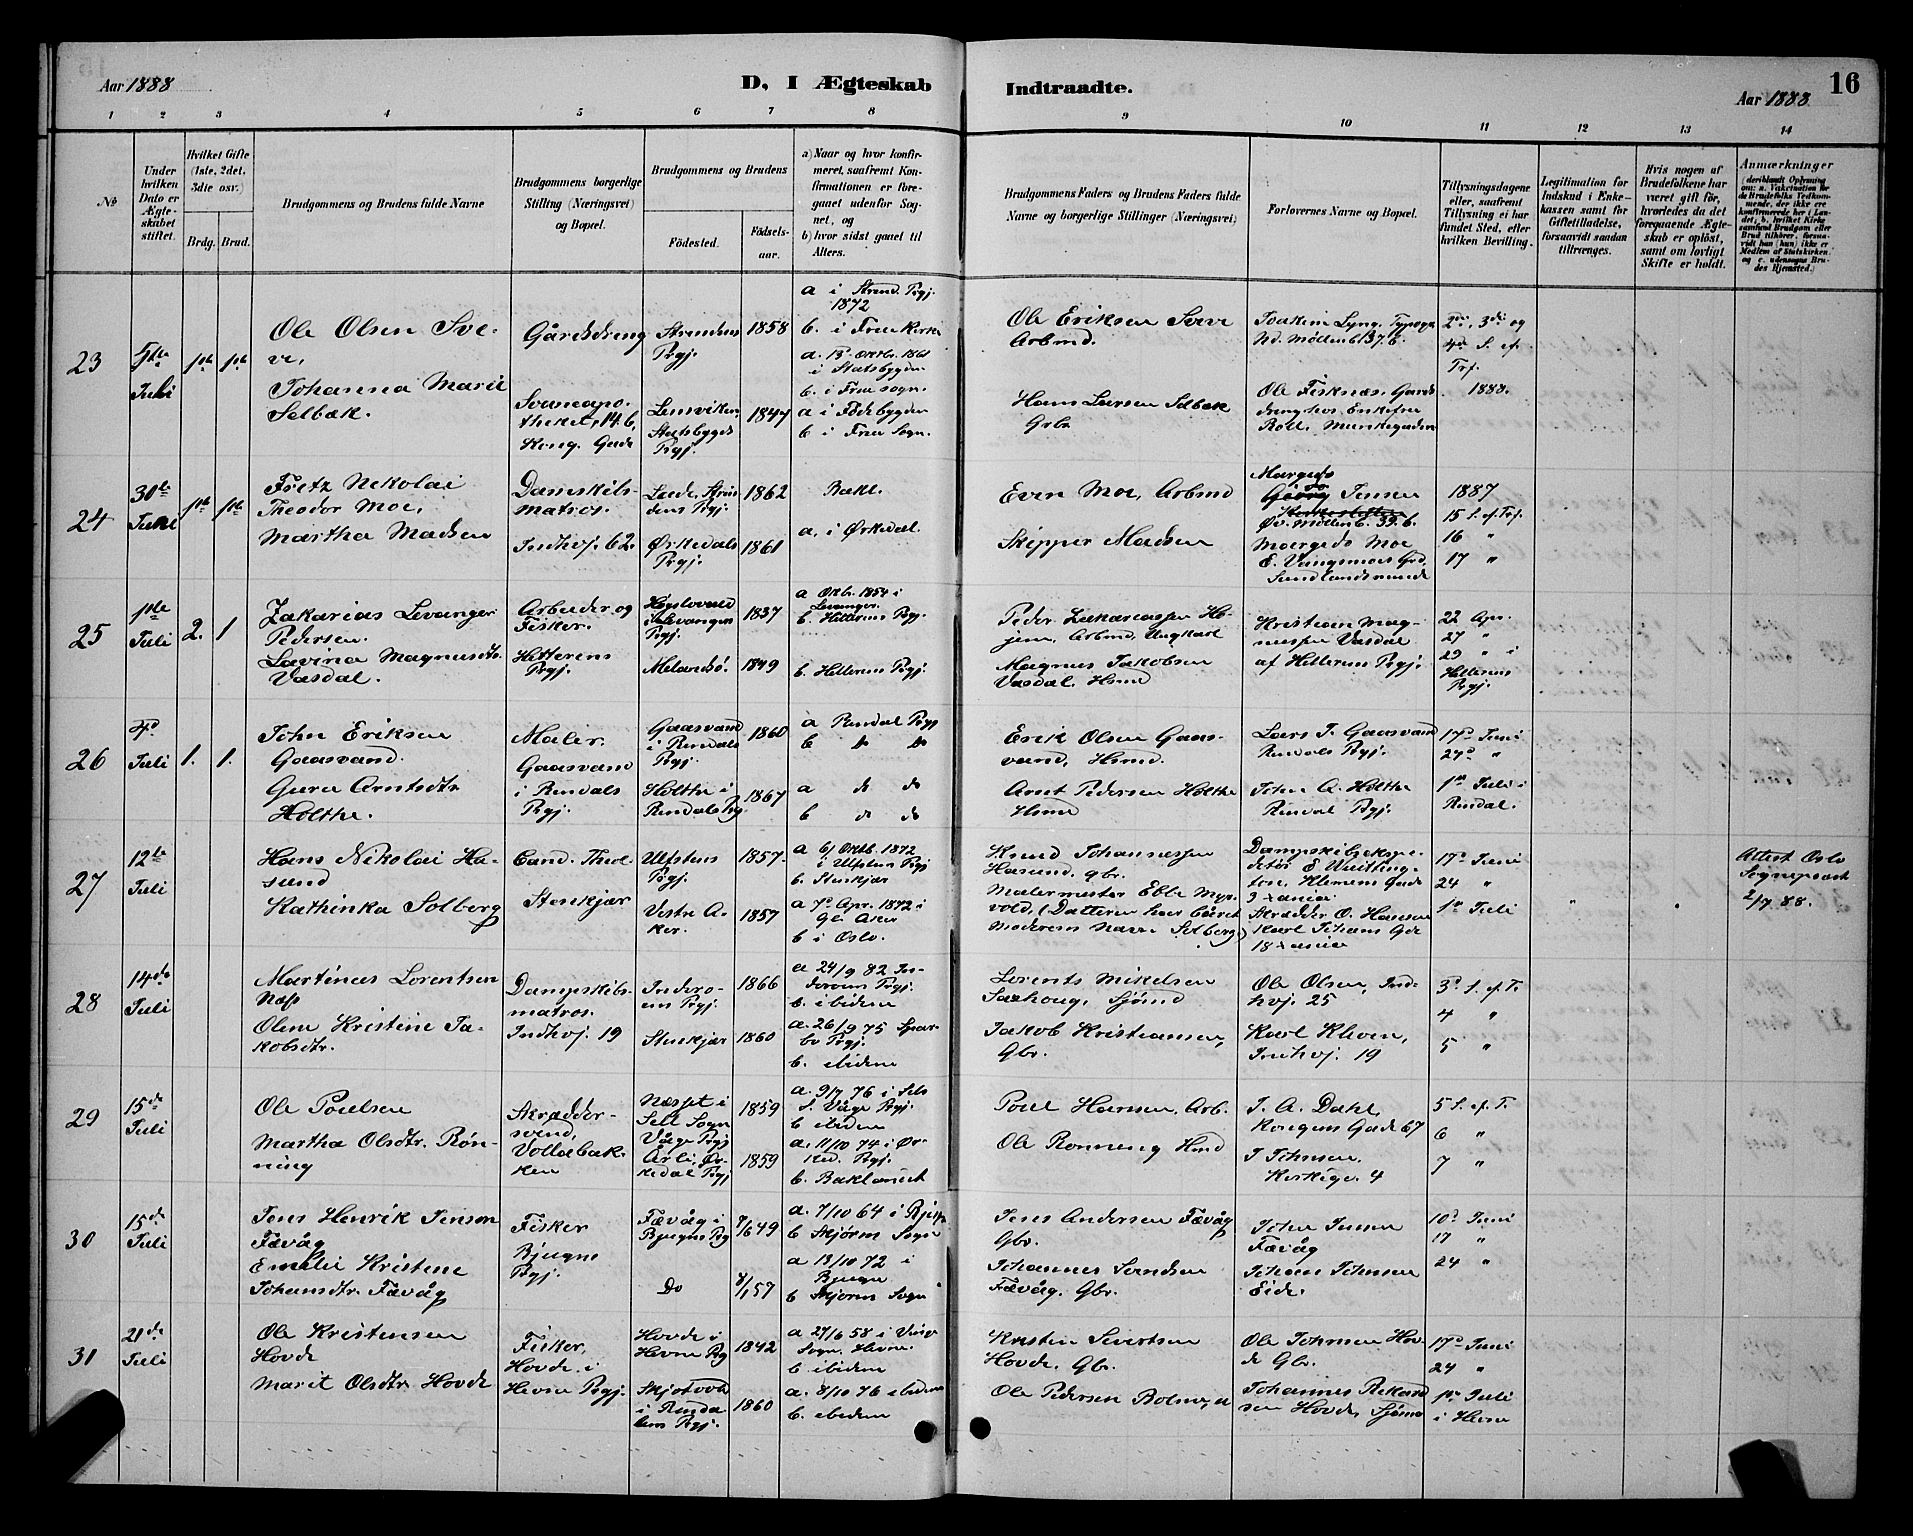 Aar 1888
D, I Ægteskab
Indtraadte.
Aar 1888
16
1 2 3 4 5 6 7 8 9 10 11 12 13 14
№
Under hvilken Dato er Ægteskabet stiftet.
Hvilket Gifte (1ste, 2det, 3die osv.)
Brdg. Brud.
Brudgommens og Brudens fulde Navne
Brudgommens borgerlige Stilling (Næringsvei) og Bopæl.
Brudgommens og Brudens
Fødested.
Fødselsaar.
a) Naar og hvor konfirmeret, saafremt Konfirmationen er foregaaet udenfor Sognet, og
b) hvor sidst gaaet til Alters.
Brudgommens Faders og Brudens Faders fulde Navne og borgerlige Stillinger (Næringsvei)
Forlovernes Navne og Bopæl.
Tillysningsdagene eller, saafremt Tillysning ei har fundet Sted, efter hvilken Bevilling.
Legitimation for Indskud i Enkekassen samt for Giftetilladelse, forsaavidt saadan tiltrænges.
Hvis nogen af Brudefolkene har været gift før, hvorledes da det foregaaende Ægteskab er opløst, samt om lovligt Skifte er holdt.
Anmærkninger
23
Juli
1ste 1ste
Ole Olsen Sve-
ve,
Johanna Marie
Selbæk.
Gårdsdreng
Svaneapo-
theket, 14 b,
Kong. Gade
Strindens
Prgj.
Lensviken
Statsbygds
Prgj.
1858
1847
a i Strind. Prgj.
1872
b. i Frue Kirke
a. 13 Oktbr. 1861
i Statsbygden
b. i Frue sogn.
a i Födebygden
b i Frue Sogn.
Ole Eriksen Sveve
Arbmd.
Hans Larsen Selbæk
Gbr.
Joakim Lyng, Typogr.
Nd. Møllenb. 37 b.
Ole Fisknæs. Gards
dreng hos Enkefru
Roll. Munkegaden
2di, 3di og
4de S. ef.
Trf.
1888.
24
30te
Juni
1ste 1ste
Fretz Nikolai
Theodor Moe,
Martha Madsen
Dampskibs-
matros.
Indhvj. 62.
Lade, Strin-
dens Prgj.
Ørkedals
Prgj.
1862
1861
Bakl.
a, i Ørkedal.
Even Moe, Arbmd
Skipper Madsen
Jensen
Øv. Møllenb. 39. b.
Moe
1887
15 S. ef. Trf.
16 "
17 "
25
1ste
Juli
2. 1
Zakarias Levanger
Pedersen.
Lavina Magnusdtr.
Vasdal.
Arbeider og
Fisker.
Hitterens
Prgj.
i Levanger
Prgj.
Melandsö.
1837
1849
a Oktbr. 1854 i
Levanger.
b. Hitterens Prgj.
b. Hitterens Prgj.
Arbmd, Ungkarl
Magnus Jakobsen
Vasdal. Hsmd
Kristian Mag-
nussen Vasdal
af Hitterens Prgj.
22 Apr.
27 "
29 " i
Hitterens
Prgj.
26
Juli
1. 1.
John Eriksen
Gaasvand.
Guru Arntsdtr
Holthe.
Maler.
Gaasvand
i Rindals
Prgj.
Gaasvand
i Rindals
Prgj.
Holthe i
Rindals Prg
1860
1867
a Rindal Prgj
b do do
a do do
b do do
Erik Olsen Gaas-
vand, Hsmd.
Arnt Pedersen Holthe
Hsmd
Lars J. Gaasvand
Rindals Prgj.
John A. Holthe
Rindal Prgj.
17d Juni
24d "
1ste Juli i
Rindal.
27
12te
Juli
Hans Nikolai Ha-
sund
Kathinka Solberg
Cand. Theol
Stenkjær
Ulfstens
Prgj.
Vestre A-
ker.
1857
1857
a 6/ Oktb. 1872
i Ulfstens Prgj
b. Stenkjær
a 7d Apr. 1872 i
Gl. Aker
b i Oslo.
Knud Johannessen
Hasund, gbr.
Malermester Ebbe Myr-
vold, (Datteren har båret
Moderens Navn Solberg)
Dampskibsekspe-
ditör E Whitting-
ton, Klemens Gade
Skrædder O. Hansen
Karl Johans Gde
17d Juni
24 "
1ste Juli
Attest Oslo
Sognepræst
2/7 88.
28
14de
Juli
Martines Lorentsen
Næss
Oline Kristine Ja-
kobsdtr.
Dampskibs-
matros.
Indhvj. 19
Inderö-
ens Prgj.
Stenkjær
1866
1860
a 24/9 82 In-
deröens Prgj.
b. ibidem
a. 26/9 75 Spar-
bu Prgj.
b. ibidem
Lorents Mikelsen
Saxhoug, Sjömd
Jakob Kristiansen,
Gbr.
Ole Olsen, Ind-
hvj. 25
Karl Kleven,
Indhvj. 19
3d S. ef. T.
4 "
5 "
29
15de
Juli
Ole Poulsen
Martha Olsdtr. Rön-
ning
Skrædder-
svend,
Vollabak-
ken
Næsset i
Sell Sogn
Våge Prgj
Ör-
kedal Prgj
1859
1859
a. 9/7 76 i Sels
S. Våge Prgj.
b ibidem
a. 11/10 74 i Ör-
ked. Prgj.
b. Baklandet
Poul Hansen, Arb.
Ole Ronneng Hmd
J. A. Dahl,
Kongens Gade 67
J Johnsen,
Kirkege. 4
5 S. ef. T.
6 "
7 "
30
15de
Juli
Jens Henrik Jenson
Fævåg
Emelie Kristine
Johansdtr. Fævåg
Fisker
Bjugns
Prgj.
Fævåg i
Bjugns Prg
Do
7/6 49
8/1 57
a. 7/10 64 i Bjugn
b Skjörns Sogn
a 13/10 72 i
Bjugn
b Skjörns Sogn
Jens Andersen Fævåg
Gbr.
Johannes Serndsen
Fævåg. Gbr.
John Jensen
Fævåg
Johan Johnsen
Eide.
10d Juni
17 "
24 "
31
21de
Juli
Ole Kristensen
Hovde
Marit Olsdtr Hovde
Fisker,
Hovde i
Hevne Prgj.
Hovde i
Hevne Prg
i Rinda-
lens Prgj.
1842
1860
a 27/6 58 i Vinje
Sogn, Hevne.
b. ibidem
a. 8/10 76 ibidem
b. ibidem
Kristen Sivertsen
Hovde. Gbr.
Ole Pedersen
Ole Johnsen Hov-
de Gbr.
Johannes Rikard-
sen Hovde, Sjömd
17d Juni
24 "
1ste Juli
i Hevne